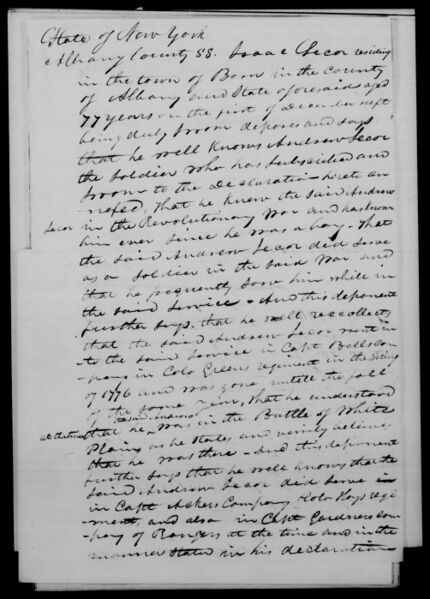 State of New York
Albany County SS. Isaac Secor residing
in the town of Bern in the County
of Albany and State aforesaid aged
77 years on the first of December next
being duly sworn deposes and says
that he well knows Andrew Secor
the soldier who has subscribed and
sworn to the Declaration hereto an-
nexed, that he knew the said Andrew
Secor in the Revolutionary War and has known
him ever since he was a boy. That
the said Andrew Secor did serve
as a soldier in the said War and
that he frequently saw him while in
the said service - And this deponent
further says that he well recollects
that the said Andrew Secor went in-
to the said service in Capt Bells com
pany in Colo Greens regiment in the Spring
of 1776 and was gone untill the fall
of the same year, that he understood
at the time that he the said Andrew was in the Battle of White
Plains as he states and verily believes
that he was there - And this deponent
further says that he well knows that the
said Andrew Secor did serve in
in Capt Ackers Company Colo Hays regi
ment, and also in Capt Gardners com-
pany of Rangers at the time and in the
manner stated in his declaration